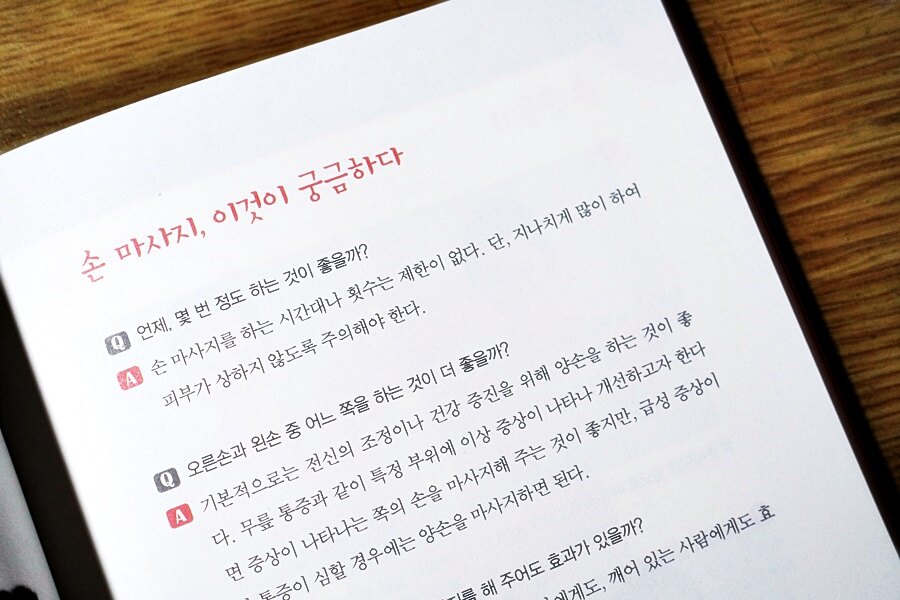 손 마사지, 이것이 궁금하다
Q 언제, 몇 번 정도 하는 것이 좋을까?
A 손 마사지를 하는 시간대나 횟수는 제한이 없다. 단, 지나치게 많이 하여
피부가 상하지 않도록 주의해야 한다.
Q 오른손과 왼손 중 어느 쪽을 하는 것이 더 좋을까?
A 기본적으로는 전신의 조정이나 건강 증진을 위해 양손을 하는 것이 좋
다. 무릎 통증과 같이 특정 부위에 이상 증상이 나타나 개선하고자 한다
면 증상이 나타나는 쪽의 손을 마사지해 주는 것이 좋지만, 급성 증상이
통증이 심할 경우에는 양손을 마사지하면 된다.
를 해 주어도 효과가 있을까?
에게도, 깨어 있는 사람에게도 효